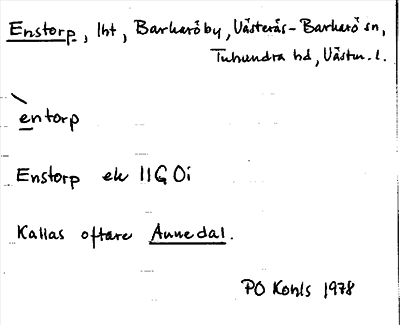 Enstorp, lht, Barkarö by, Västerås-Barkarö sn,
Tuhundra hd, Västm. l.
èntorp
Enstorp ek 11G 0i
Kallas oftare Annedal.
PO Kohls 1978